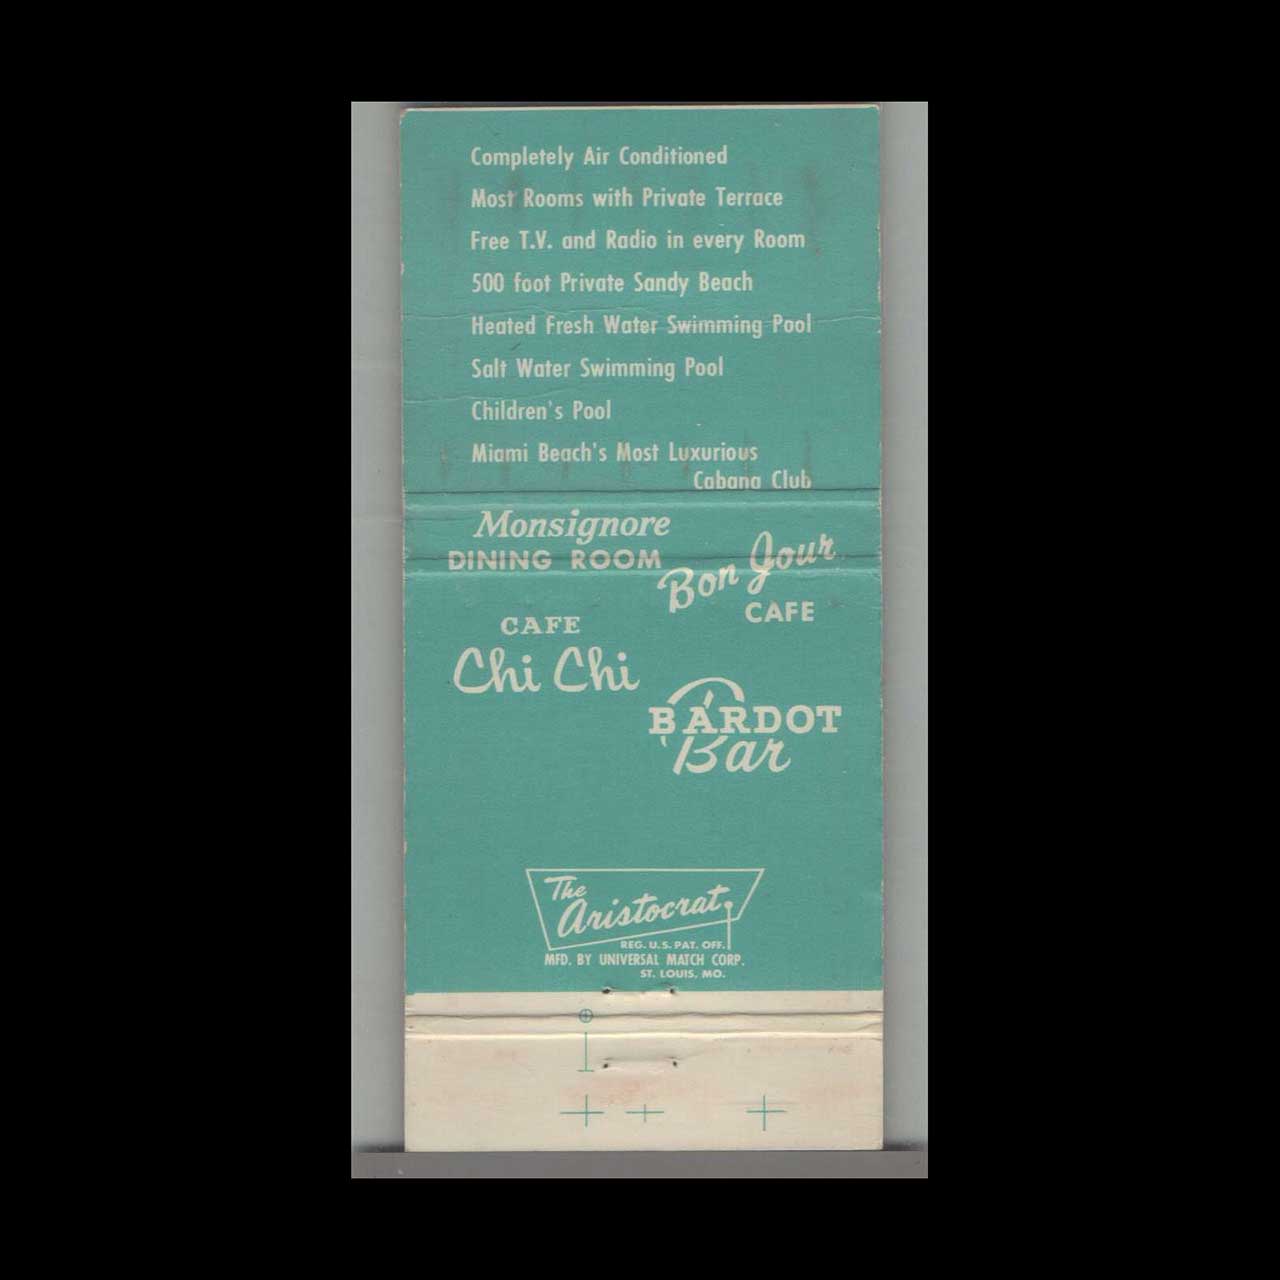 Completely Air Conditioned
Most Rooms with Private Terrace
Free T.V. and Radio in every Room
500 foot Private Sandy Beach
Heated Fresh Water Swimming Pool
Salt Water Swimming Pool
Children's Pool
Miami Beach's Most Luxurious
Cabana Club
Monsignore
DINING ROOM
Bon Jour
CAFE
CAFE
Chi Chi
BARDOT
Bar
The
Aristocrat
REG. U.S. PAT. OFF.
MFD. BY UNIVERSAL MATCH CORP.
ST. LOUIS, MO.